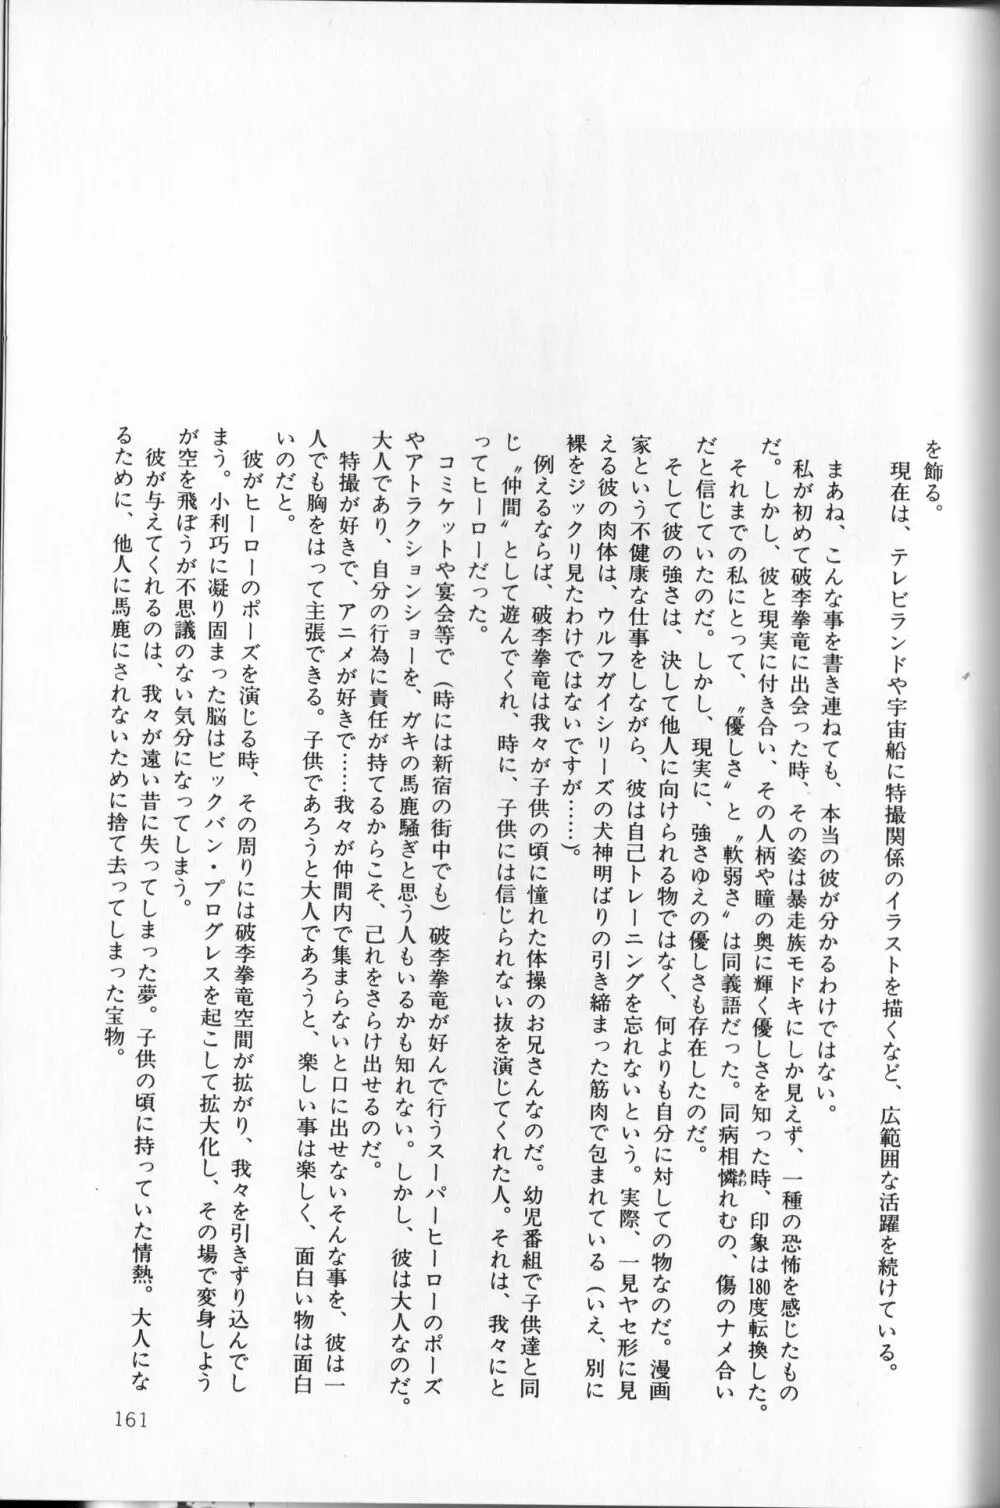 を飾る。
現在は、テレビランドや宇宙船に特撮関係のイラストを描くなど、広範囲な活躍を続けている。
まあね、こんな事を書き連ねても、本当の彼が分かるわけではない。
私が初めて破李拳竜に出会った時、その姿は暴走族モドキにしか見えず、一種の恐怖を感じたもの
だ。しかし、彼と現実に付き合い、その人柄や瞳の奥に輝く優しさを知った時、印象は180度転換した。
それまでの私にとって、〝優しさ〟と〝軟弱さ〟は同義語だった。同病相憐れむの、傷のナメ合い
だと信じていたのだ。しかし、現実に、強さゆえの優しさも存在したのだ。
そして彼の強さは、決して他人に向けられる物ではなく、何よりも自分に対しての物なのだ。漫画
家という不健康な仕事をしながら、彼は自己トレーニングを忘れないという。実際、一見ヤセ形に見
える彼の肉体は、ウルフガイシリーズの犬神明ばりの引き締まった筋肉で包まれている（いえ、別に
裸をジックリ見たわけではないですが……）。
例えるならば、破李拳竜は我々が子供の頃に憧れた体操のお兄さんなのだ。幼児番組で子供達と同
じ〝仲間〟として遊んでくれ、時に、子供には信じられない抜を演じてくれた人。それは、我々にと
ってヒーローだった。
コミケットや宴会等で（時には新宿の街中でも）破李拳竜が好んで行うスーパーヒーローのポーズ
やアトラクションショーを、ガキの馬鹿騒ぎと思う人もいるかも知れない。しかし、彼は大人なのだ。
大人であり、自分の行為に責任が持てるからこそ、己れをさらけ出せるのだ。
特撮が好きで、アニメが好きで……我々が仲間内で集まらないと口に出せないそんな事を、彼は一
人でも胸をはって主張できる。子供であろうと大人であろうと、楽しい事は楽しく、面白い物は面白
いのだと。
彼がヒーローのポーズを演じる時、その周りには破李拳竜空間が拡がり、我々を引きずり込んでし
まう。小利巧に凝り固まった脳はビックバン・プログレスを起こして拡大化し、その場で変身しよう
が空を飛ぼうが不思議のない気分になってしまう。
彼が与えてくれるのは、我々が遠い昔に失ってしまった夢。子供の頃に持っていた情熱。大人にな
るために、他人に馬鹿にされないために捨て去ってしまった宝物。
161